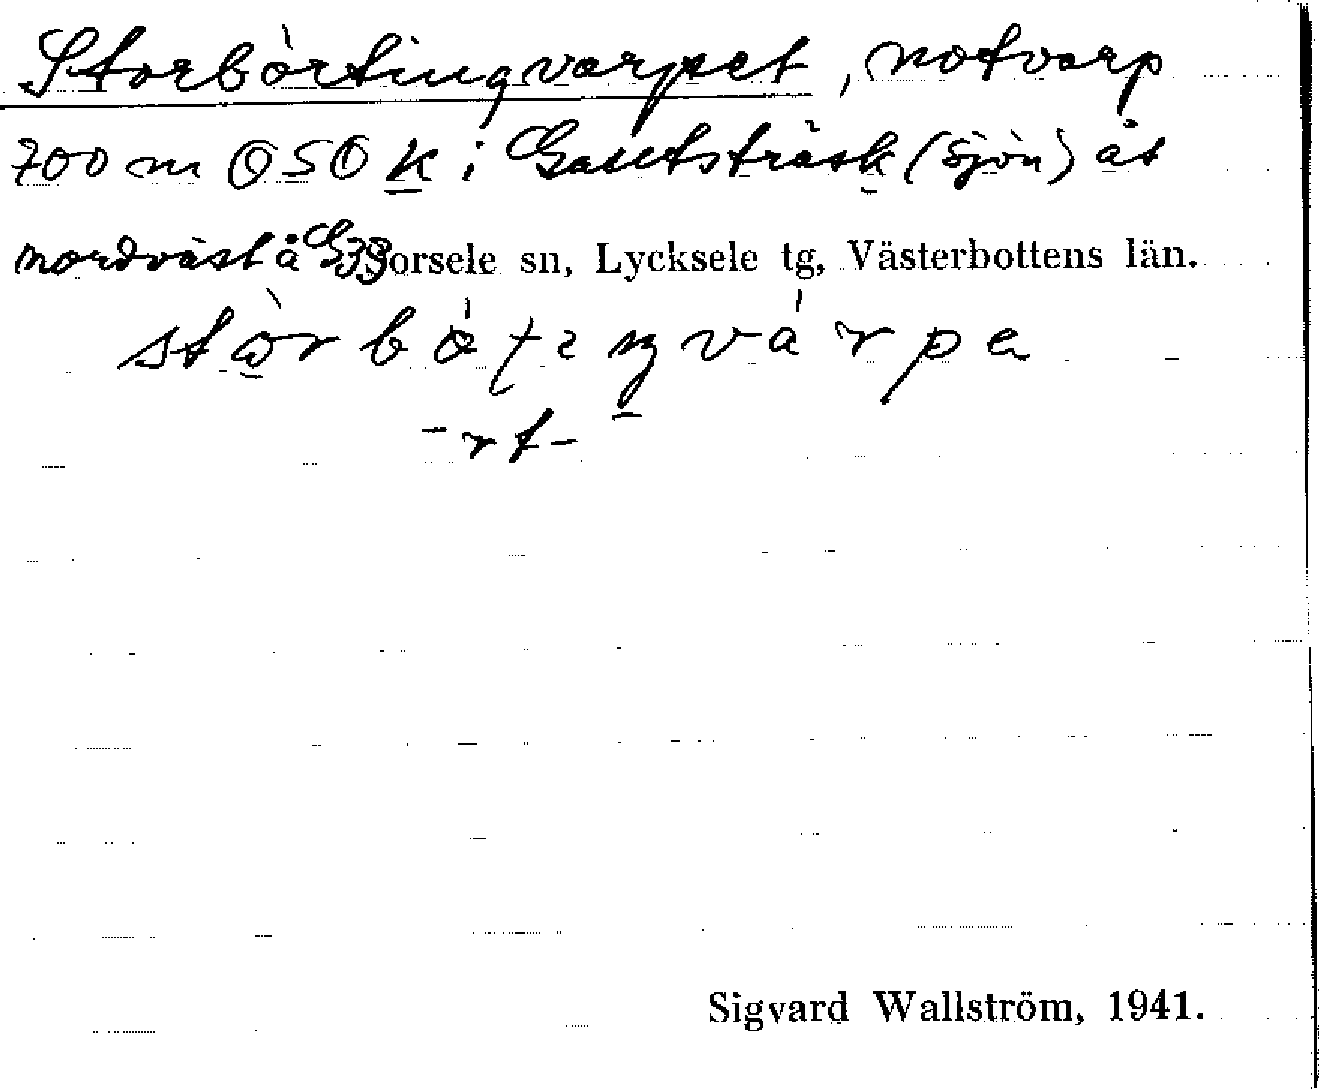 Storbörtingvarpet, notvarp
700 m OSO k i Gautsträsk (sjön) åt
nordväst å G33 Sorsele sn, Lycksele tg, Västerbottens län.
-rt-
Sigvard Wallström, 1941.